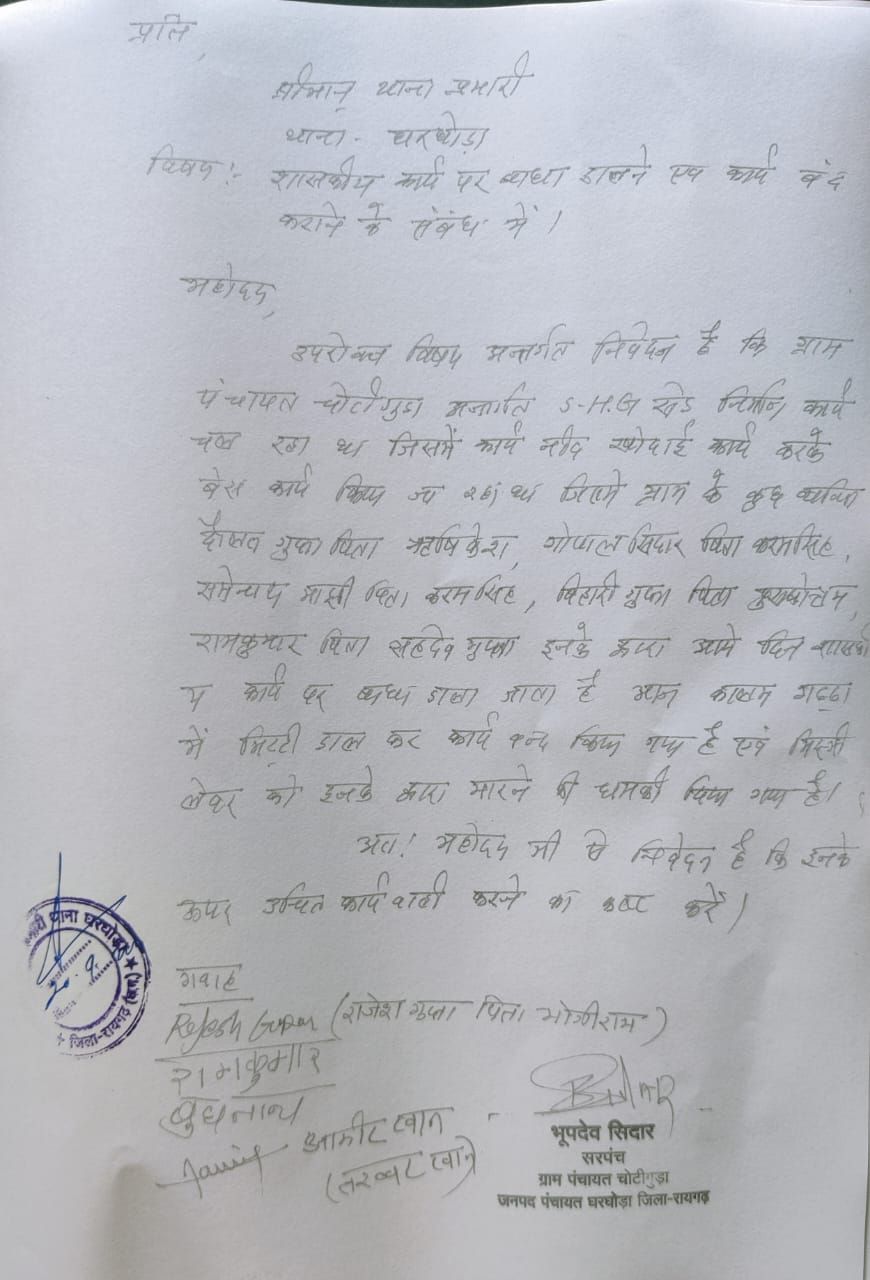 प्रति,
श्रीमान् थाना प्रभारी
थाना - घरघोड़ा
विषय :- शासकीय कार्य पर ब्यधा डालने एव कार्य बंद
कराने के संबंध में ।
महोदय,
उपरोक्त विषय अन्तर्गत निवेदन है कि ग्राम
पंचायत चोटीगुडा अन्तर्गत S-H.G शेड निर्माण कार्य
चल रहा था जिसमें कार्य नींद खोदाई कार्य करके
बेस कार्य किया जा रहा था जिसमे ग्राम के कुछ व्यक्ति
गुप्ता पिता ऋषिकेश, गोपाल सिदार पिता करमसिंह,
माझी पिता करमसिंह, बिहारी गुप्ता पिता पुरुषोत्तम,
रामकुमार पिता सहदेव गुप्ता इनके द्वारा आये दिन शासकी
य कार्य पर ब्यधा डाला जाता है आज कालम गढ्ढा
में मिट्टी डाल कर कार्य बन्द किया गया है एवं मिस्त्री
लेबर को इनके द्वारा मारने की धमकी दिया गया है।
अत! महोदय जी से निवेदन है कि इनके
ऊपर उचित कार्यवाही करने का कष्ट करें।
थाना घरघोड़ा
20.9.
जिला-रायगढ़ (छ.ग.)
गवाह
Rajesh Gupta (राजेश गुप्ता पिता मोजीराम)
रामकुमार
बुधनाथ
आमीर खान
(सरवर खान)
भूपदेव सिदार
सरपंच
ग्राम पंचायत चोटीगुड़ा
जनपद पंचायत घरघोड़ा जिला-रायगढ़